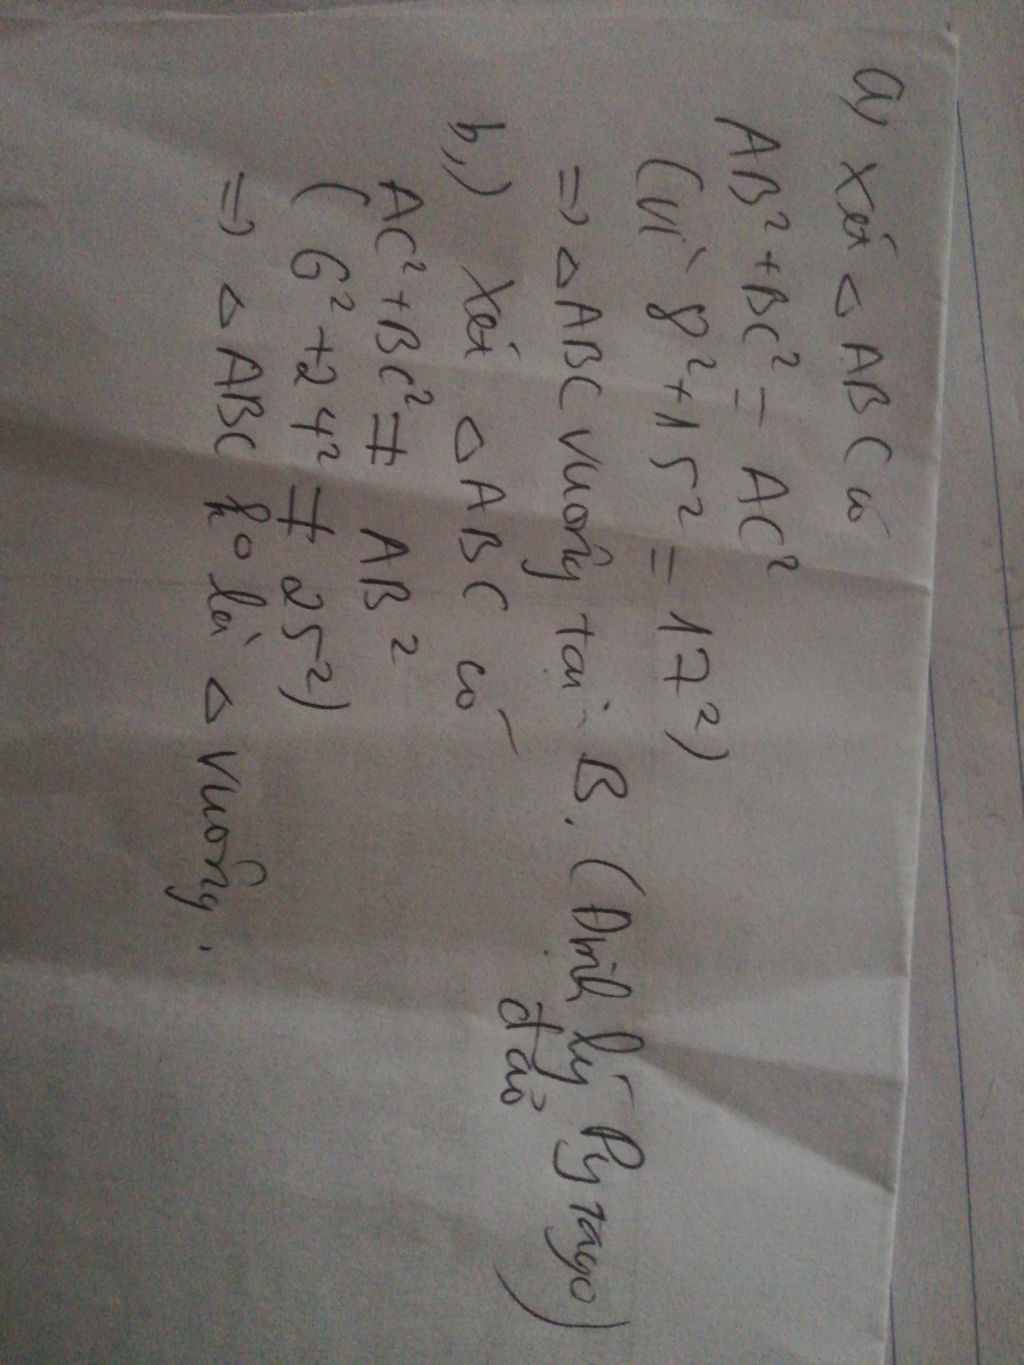 a, Xét △ ABC có
AB² + BC² = AC²
(Vì 8² + 15² = 17²)
=> △ ABC vuông tại B. (Định lý Pytago
đảo)
b,) Xét △ ABC có
AC² + BC² ≠ AB²
(6² + 24² ≠ 25²)
=> △ ABC ko là △ vuông.